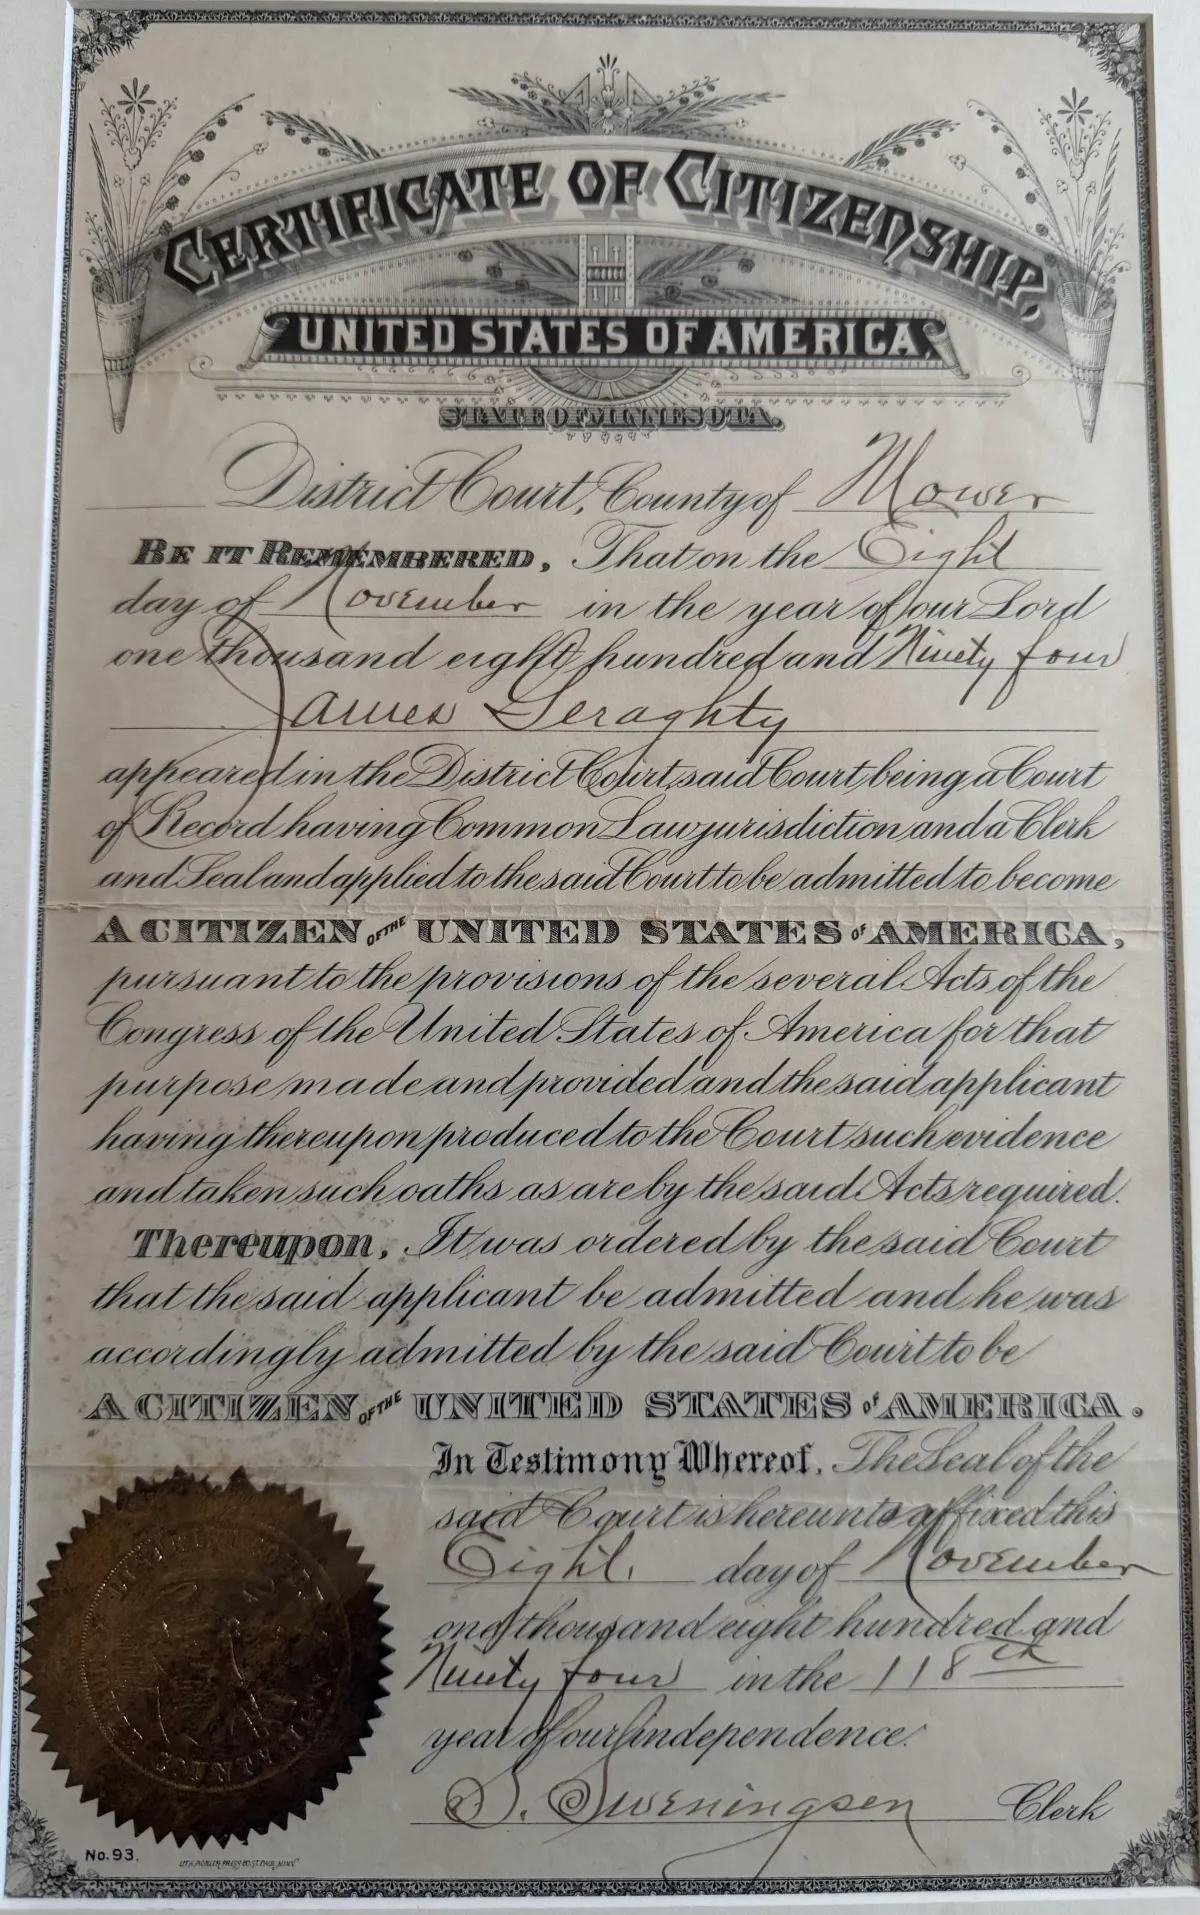 CERTIFICATE OF CITIZENSHIP,
UNITED STATES OF AMERICA,
STATE OF MINNESOTA.
District Court, County of Mower
BE IT REMEMBERED, That on the Eight
day of November in the year of our Lord
one thousand eight hundred and Ninety four
James Geraghty
appeared in the District Court, said Court being a Court
of Record having Common Law jurisdiction and a Clerk
and Seal and applied to the said Court to be admitted to become
A CITIZEN OF THE UNITED STATES OF AMERICA,
pursuant to the provisions of the several Acts of the
Congress of the United States of America for that
purpose made and provided and the said applicant
having thereupon produced to the Court such evidence
and taken such oaths as are by the said Acts required.
Thereupon, It was ordered by the said Court
that the said applicant be admitted and he was
accordingly admitted by the said Court to be
A CITIZEN OF THE UNITED STATES of AMERICA.
In Testimony Whereof, The Seal of the
said Court is hereunto affixed this
Eight. day of November
one thousand eight hundred and
Ninety four in the 118th
year of our independence.
S. Sweningsen Clerk
DISTRICT COURT
COUNTY
No. 93.
PRESS CO. ST. PAUL, MINN.